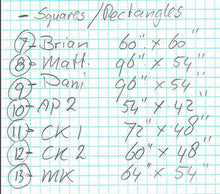 - Squares/Rectangles
7- Brian 60" x 60"
8- Matt. 96" x 54"
9- Dani 96" x 54"
10- AP2 54" x 42"
11- CK1 72" x 48"
12- CK2 60" x 48"
13- MK 64" x 54"